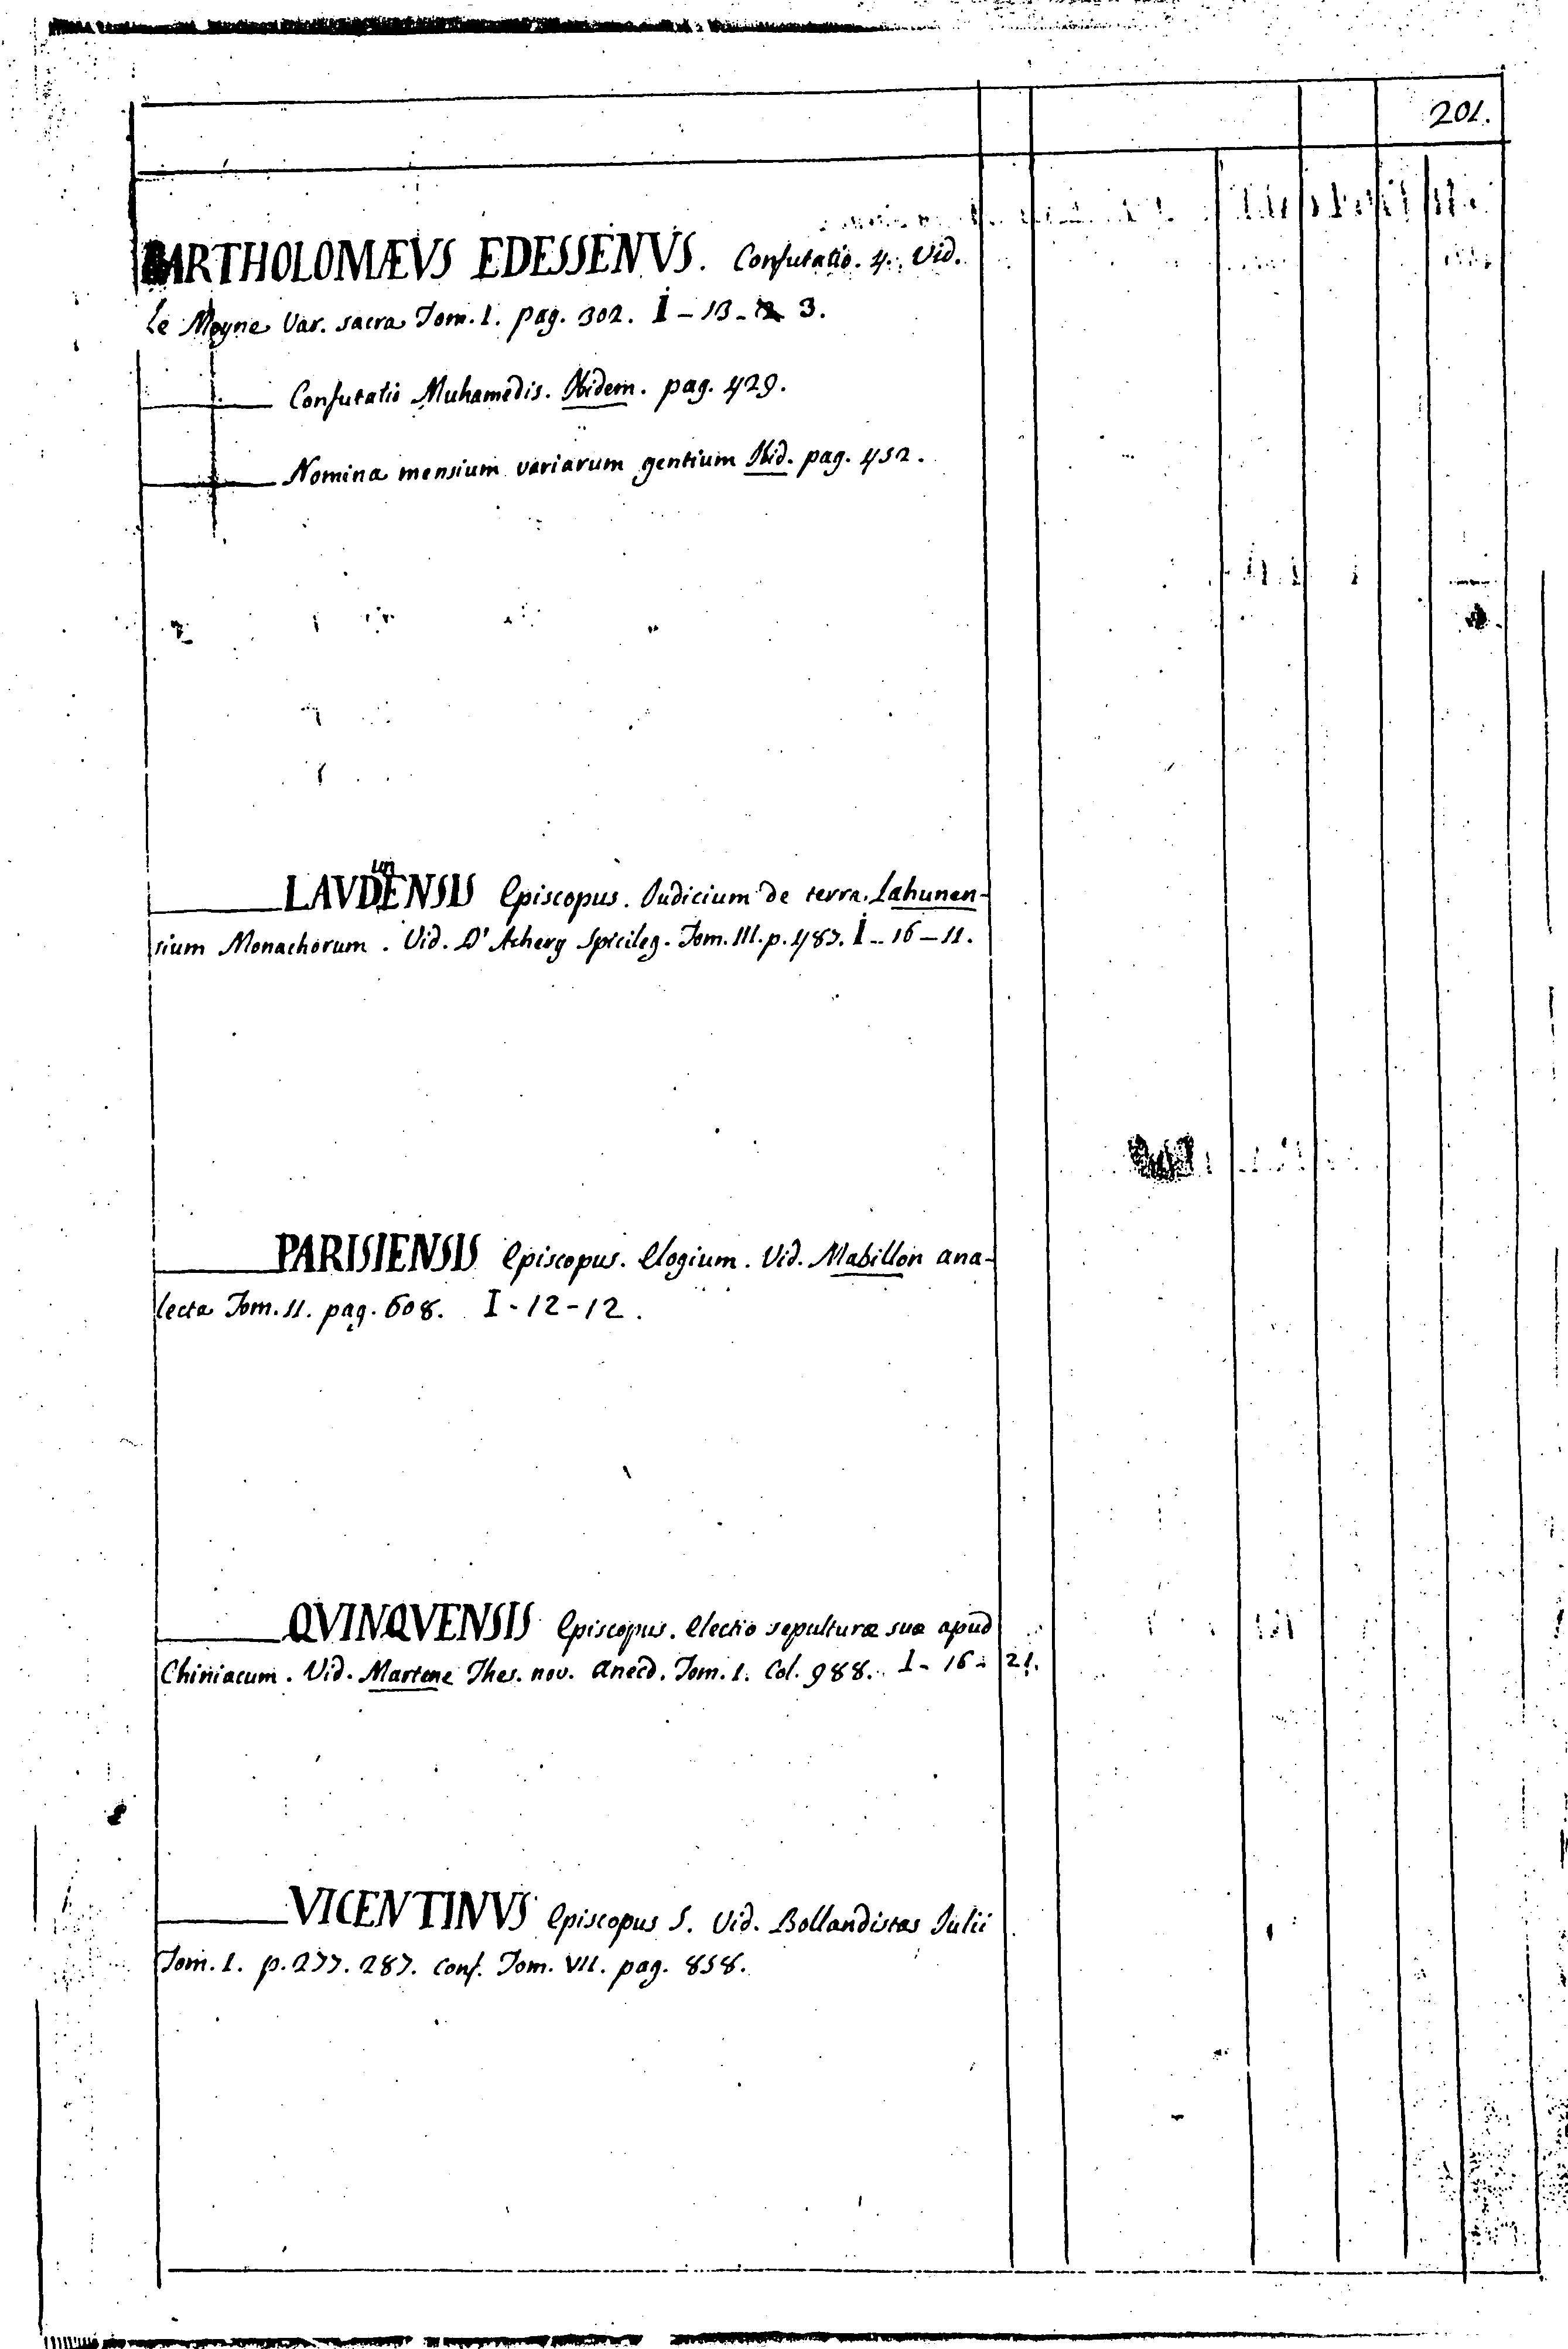 201.
BARTHOLOMÆVS EDESSENVS. Confutatio. 4. Vid.
Le Moyne Var. sacra Tom. I. pag. 302. I - 13 - 3.
Confutatio Muhamedis. Ibidem. pag. 429.
Nomina mensium variarum gentium Ibid. pag. 452.
LAVDunENSIS Episcopus. Iudicium de terra Lahunen-
sium Monachorum. Vid. D'Achery Spicileg. Tom. III. p. 487. I - 16 - 11.
PARISIENSIS Episcopus. Elogium. Vid. Mabillon ana-
lecta Tom. II. pag. 608. I - 12 - 12.
QVINQVENSIS Episcopus. Electio sepulturæ suæ apud
Chiniacum. Vid. Martene Thes. nov. Anecd. Tom. I. Col. 988. I - 16 - 21.
VICENTINVS Episcopus S. Vid. Bollandistas Iulii
Tom. I. p. 277. 287. conf. Tom. VII. pag. 858.